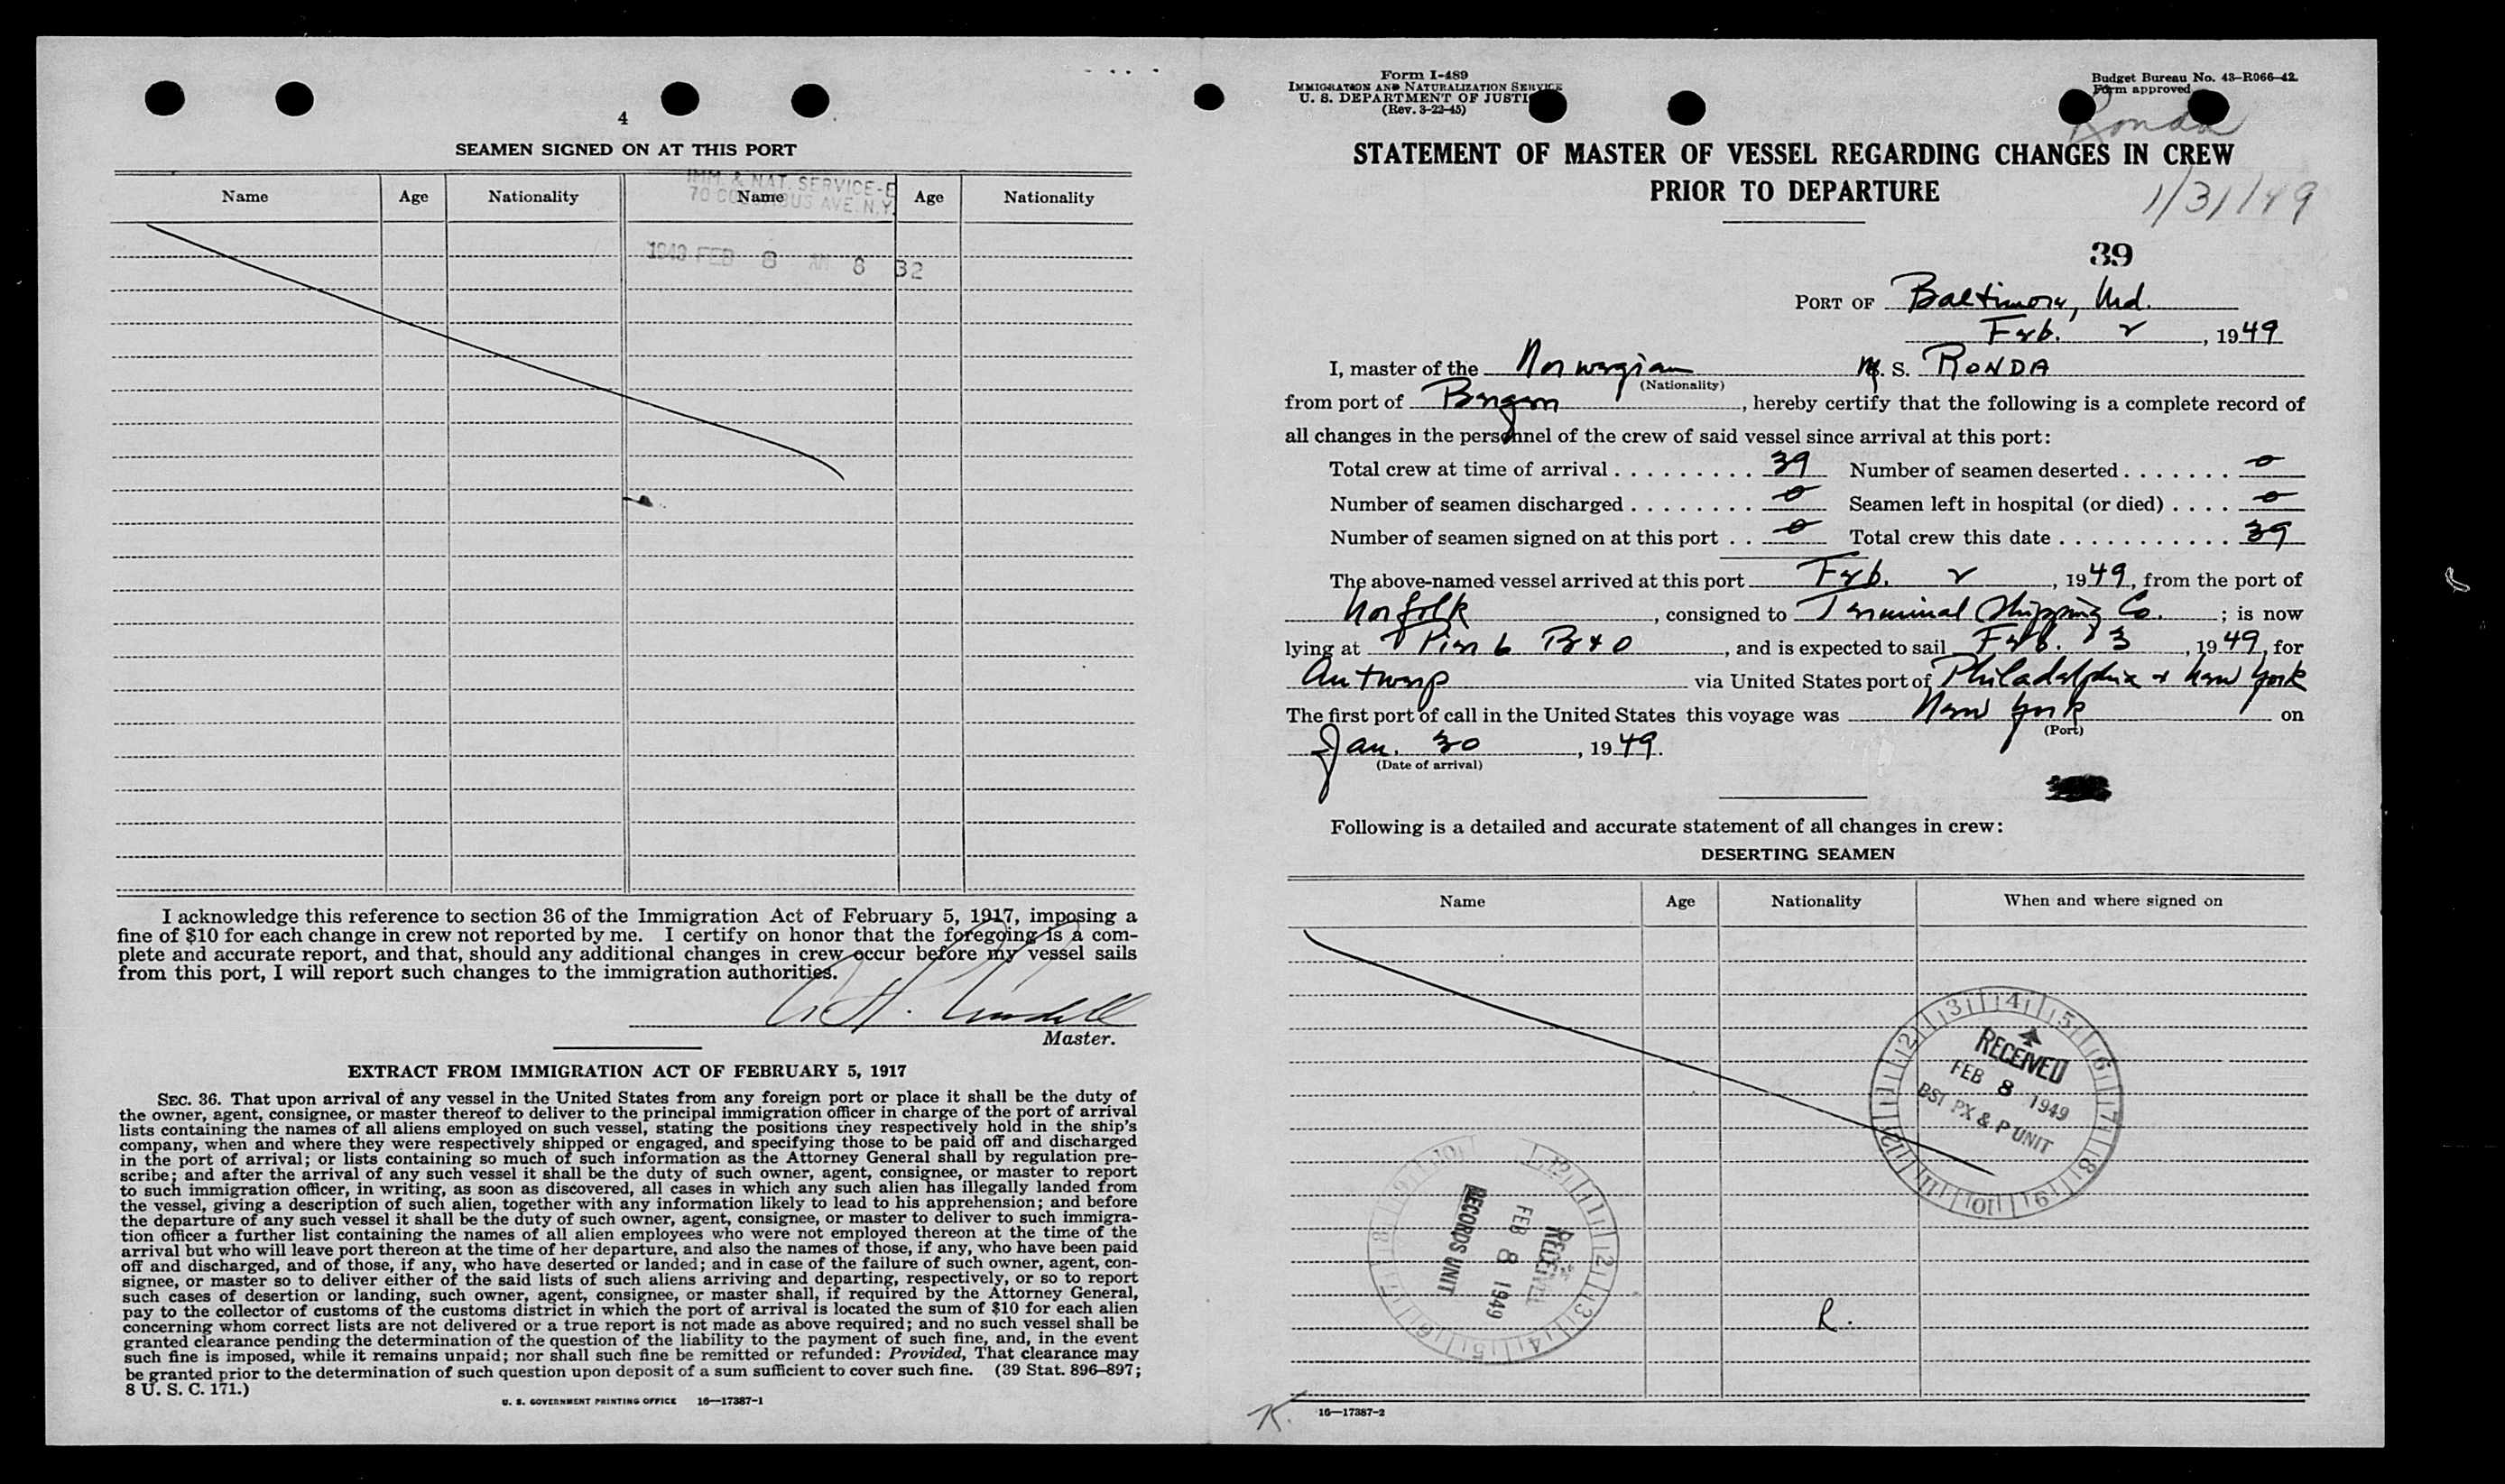 4
SEAMEN SIGNED ON AT THIS PORT
IMM. & NAT. SERVICE-E
70 COLUMBUS AVE. N.Y.
Name Age Nationality Name Age Nationality
1949 FEB 8 AM 8 32
I acknowledge this reference to section 36 of the Immigration Act of February 5, 1917, imposing a
fine of $10 for each change in crew not reported by me. I certify on honor that the foregoing is a com-
plete and accurate report, and that, should any additional changes in crew occur before my vessel sails
from this port, I will report such changes to the immigration authorities.
Master.
EXTRACT FROM IMMIGRATION ACT OF FEBRUARY 5, 1917
SEC. 36. That upon arrival of any vessel in the United States from any foreign port or place it shall be the duty of
the owner, agent, consignee, or master thereof to deliver to the principal immigration officer in charge of the port of arrival
lists containing the names of all aliens employed on such vessel, stating the positions they respectively hold in the ship's
company, when and where they were respectively shipped or engaged, and specifying those to be paid off and discharged
in the port of arrival; or lists containing so much of such information as the Attorney General shall by regulation pre-
scribe; and after the arrival of any such vessel it shall be the duty of such owner, agent, consignee, or master to report
to such immigration officer, in writing, as soon as discovered, all cases in which any such alien has illegally landed from
the vessel, giving a description of such alien, together with any information likely to lead to his apprehension; and before
the departure of any such vessel it shall be the duty of such owner, agent, consignee, or master to deliver to such immigra-
tion officer a further list containing the names of all alien employees who were not employed thereon at the time of the
arrival but who will leave port thereon at the time of her departure, and also the names of those, if any, who have been paid
off and discharged, and of those, if any, who have deserted or landed; and in case of the failure of such owner, agent, con-
signee, or master so to deliver either of the said lists of such aliens arriving and departing, respectively, or so to report
such cases of desertion or landing, such owner, agent, consignee, or master shall, if required by the Attorney General,
pay to the collector of customs of the customs district in which the port of arrival is located the sum of $10 for each alien
concerning whom correct lists are not delivered or a true report is not made as above required; and no such vessel shall be
granted clearance pending the determination of the question of the liability to the payment of such fine, and, in the event
such fine is imposed, while it remains unpaid; nor shall such fine be remitted or refunded: Provided, That clearance may
be granted prior to the determination of such question upon deposit of a sum sufficient to cover such fine. (39 Stat. 896–897;
8 U. S. C. 171.)
U. S. GOVERNMENT PRINTING OFFICE 16—17387-1
Form I-489
IMMIGRATION AND NATURALIZATION SERVICE
U. S. DEPARTMENT OF JUSTI
(Rev. 3-22-45)
Budget Bureau No. 43–R066–42
Form approved
Ronda
STATEMENT OF MASTER OF VESSEL REGARDING CHANGES IN CREW
PRIOR TO DEPARTURE
1/31/49
39
PORT OF Baltimore, Md.
Feb. 2, 1949
I, master of the Norwegian M. S. RONDA
(Nationality)
from port of Bergen, hereby certify that the following is a complete record of
all changes in the personnel of the crew of said vessel since arrival at this port:
Total crew at time of arrival . . . . . . . . . 39 Number of seamen deserted . . . . . . . 0
Number of seamen discharged . . . . . . . . 0 Seamen left in hospital (or died) . . . . 0
Number of seamen signed on at this port . . 0 Total crew this date . . . . . . . . . . . 39
The above-named vessel arrived at this port Feb. 2, 1949, from the port of
Norfolk, consigned to Terminal Shipping Co.; is now
lying at Pier 6 B & O, and is expected to sail Feb. 3, 1949, for
Antwerp via United States port of Philadelphia & New York
The first port of call in the United States this voyage was New York on
(Port)
Jan. 30, 1949.
(Date of arrival)
Following is a detailed and accurate statement of all changes in crew:
DESERTING SEAMEN
Name Age Nationality When and where signed on
1 2 3 4 5 6 7 8 9 10 11 12
RECEIVED
FEB 8 1949
BSI PX & P UNIT
12 1 2 3 4 5 6 7 8 9 10
RECEIVED
FEB 8 1949
RECORDS UNIT
R.
K.
16—17387-2